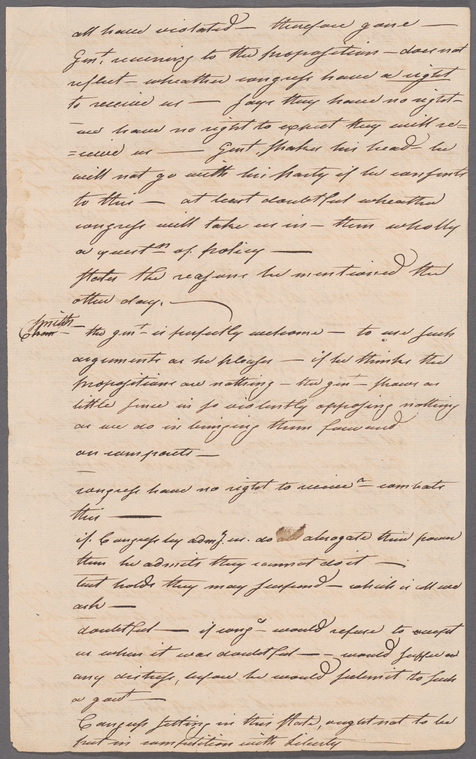 all have violated — therefore gone —
Gent. recurring to the proposition — does not
reflect — wheather congress have a right
to receive us — says they have no right —
— we have no right to expect they will re=
=ceive us — Gent. shakes his head — he
will not go with his party if he consents
to this — at least doubtful wheather
congress will take us in — then wholly
a questn. of policy —
states the reasons he mentioned the
other day. —
Smith —
the gent. is perfectly welcome — to use such
arguments as he pleases — if he thinks the
propositions are nothing — the gent. shews as
little sense in so violently opposing nothing
as we do in bringing them forward
on compacts —
congress have no right to receive — combats
this —
if Congress by admg. us. do abrogate their power
then he admits they cannot do it —
but holds they may suspend — which is all we
ask —
doubtful — if congs. would refuse to accept
us when it was doubtful — would suffer
any distress, before he would submit to such
a govt —
Congress sitting in this State, ought not to be
put in competition with liberty